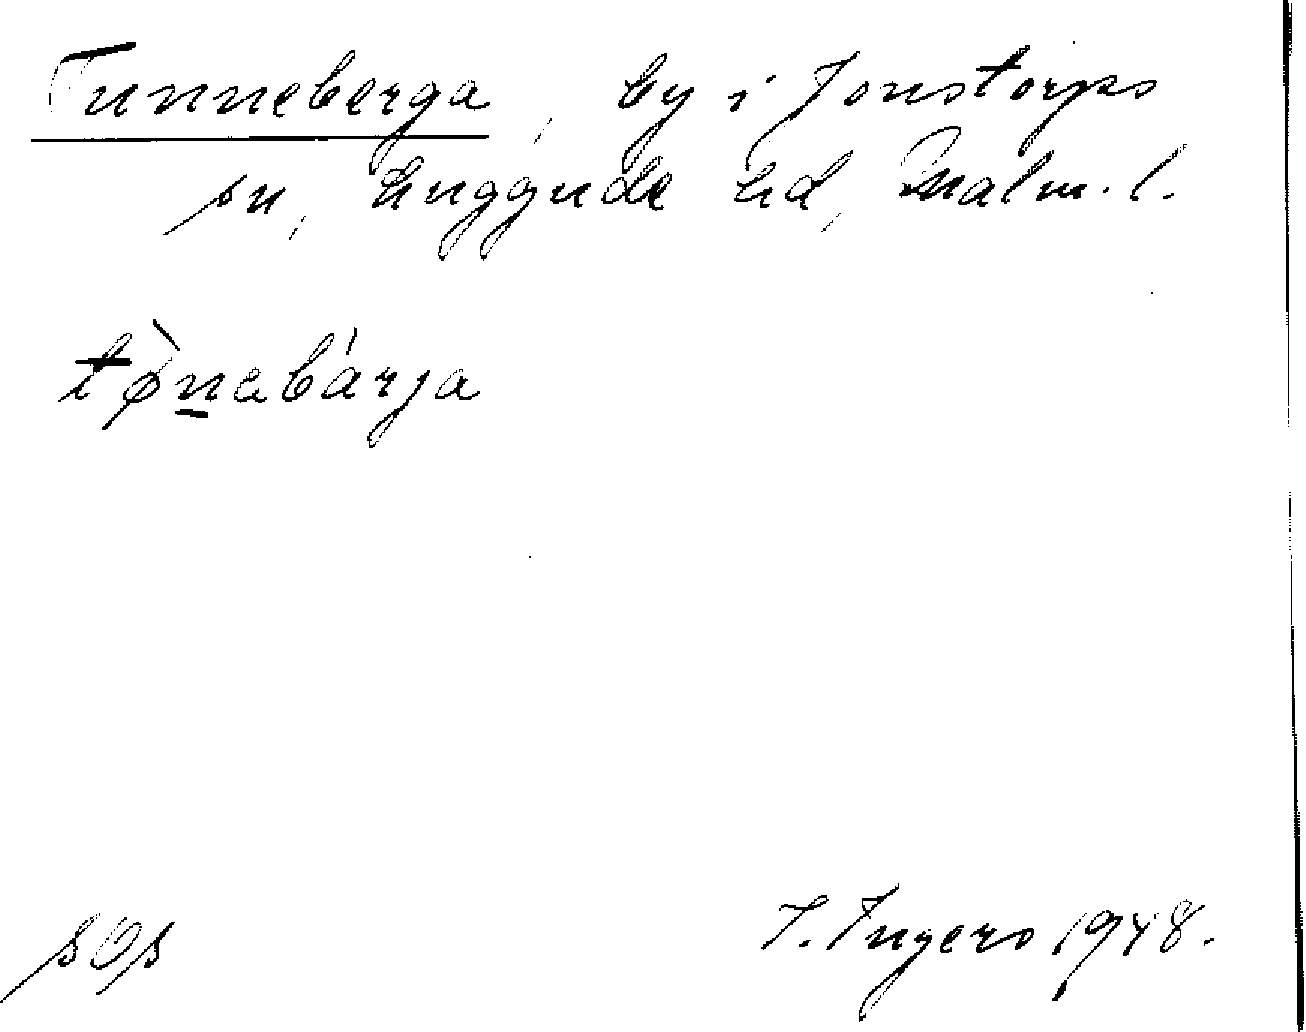 Tunneberga, by i Jonstorps
sn, Luggude hd, Malm. l.
tø̀nebárja
sOs
I. Ingers 1948.